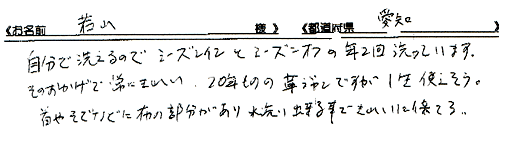 《お名前 若山 様》 《都道府県 愛知
自分で洗えるので シーズンインとシーズンオフの年2回洗っています。
そのおかげで常にきれい。20年ものの革ですが1生使えそう。
首やそでなどに布の部分があり水洗い出来る事できれいに保てる。